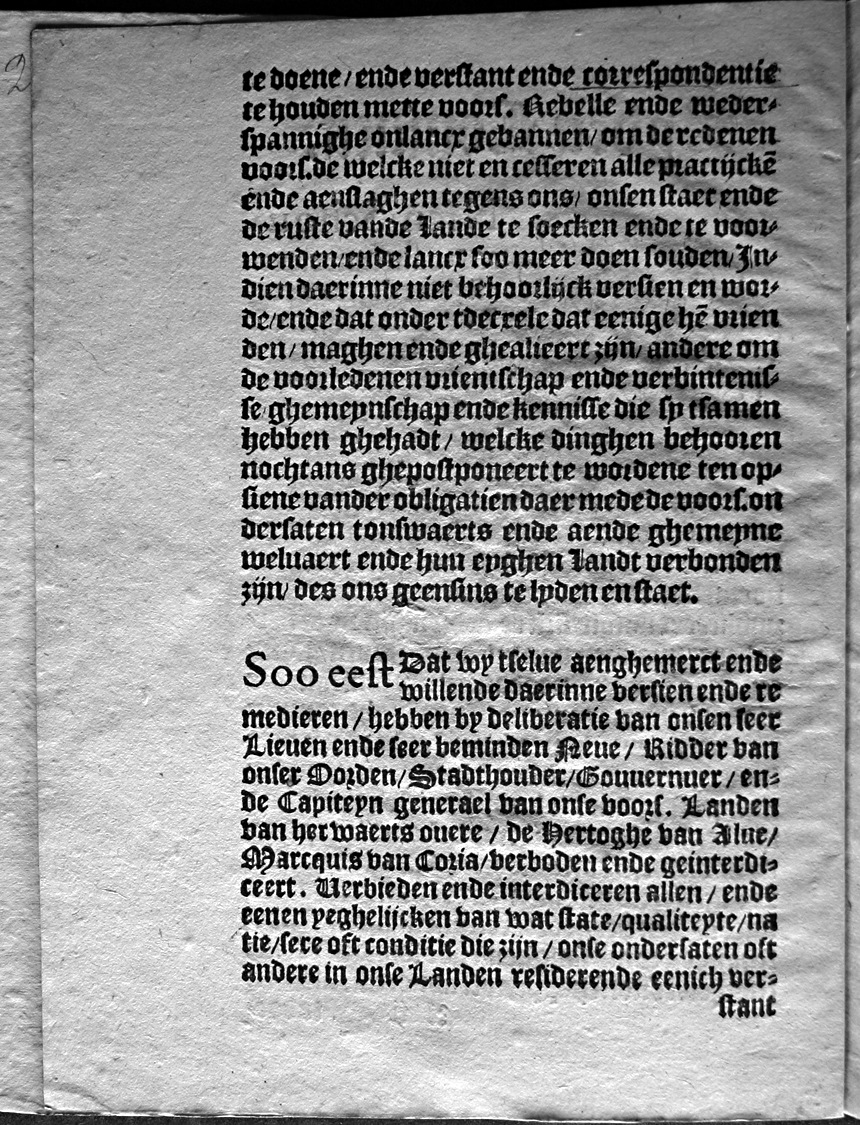 2
te doene/ ende verstant ende correspondentie
te houden mette voors. Rebelle ende weder-
spannighe onlancx gebannen/ om de redenen
voors. de welcke niet en cesseren alle practijckē
ende aenslaghen tegens ons/ onsen staet ende
de ruste vande Lande te soecken ende te voor-
wenden/ ende lancx soo meer doen souden/ In-
dien daerinne niet behoorlijck versien en wor-
de/ ende dat onder tdecxele dat eenige hē vrien
den/ maghen ende ghealieert zijn/ andere om
de voorledenen vrientschap ende verbintenis-
se ghemeynschap ende kennisse die sy tsamen
hebben ghehadt/ welcke dinghen behooren
nochtans ghepostponeert te wordene ten op-
siene vander obligatien daer mede de voors. on
dersaten tonswaerts ende aende ghemeyne
weluaert ende hun eyghen Landt verbonden
zijn/ des ons geensins te lyden en staet.
Soo eest Dat wy tselue aenghemerct ende
willende daerinne versien ende re
medieren/ hebben by deliberatie van onsen seer
Lieuen ende seer beminden Neue/ Ridder van
onser Oorden/ Stadthouder/ Gouuernuer/ en-
de Capiteyn generael van onse voors. Landen
van herwaerts ouere/ de Hertoghe van Alue/
Marcquis van Coria/ verboden ende geinterdi-
ceert. Verbieden ende interdiceren allen/ ende
eenen yeghelijcken van wat state/ qualiteyte/ na
tie/ sexe oft conditie die zijn/ onse ondersaten oft
andere in onse Landen residerende eenich ver-
stant